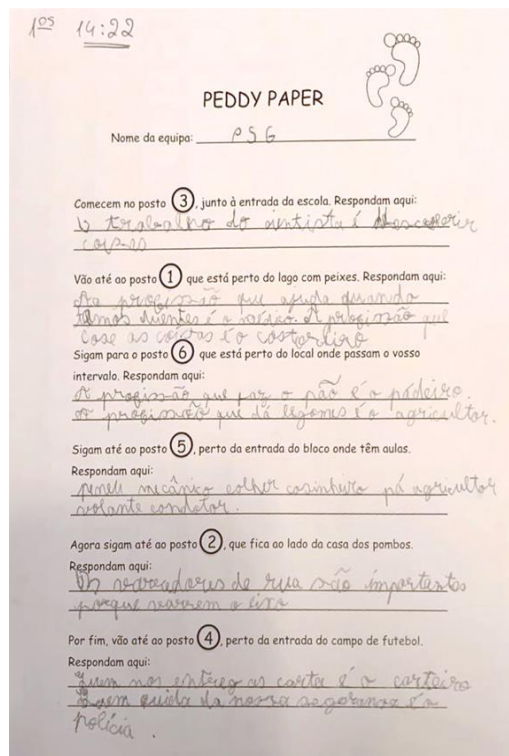 1os 14:22
PEDDY PAPER
Nome da equipa: PSG
Comecem no posto 3, junto à entrada da escola. Respondam aqui:
O trabalho do sientista é descobrir
coisas
Vão até ao posto 1 que está perto do lago com peixes. Respondam aqui:
Aa profissão que ajuda quando
tamos duentes é o médico. A profissão que
Cose as coistas é o costoreiro
Sigam para o posto 6 que está perto do local onde passam o vosso
intervalo. Respondam aqui:
A profissão que faz o pão é o padeiro.
A profissão que dá legomes é o agricultor.
Sigam até ao posto 5, perto da entrada do bloco onde têm aulas.
Respondam aqui:
peneu mecânico colher cosinheiro pá agricultor
volante condotor.
Agora sigam até ao posto 2, que fica ao lado da casa dos pombos.
Respondam aqui:
Os varredores de rua são importantes
porque varrem o lixo
Por fim, vão até ao posto 4, perto da entrada do campo de futebol.
Respondam aqui:
Quem nos entreg as carta é o carteiro
Quem cuida da nossa segoransa é a
polícia.